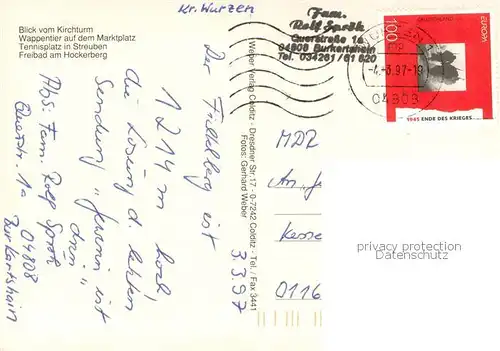 Kr. Wurzen
Blick vom Kirchturm
Wappentier auf dem Marktplatz
Tennisplatz in Streuben
Freibad am Hockerberg
Fam.
Rolf Sprök
Querstraße 1a
04808 Burkartshain
Tel. 034261/61 620
-4.-3.97-19
04808
100
DEUTSCHLAND
EUROPA
1945 ENDE DES KRIEGES
Weber Verlag Colditz - Dresdner Str. 17 - 0-7242 Colditz - Tel. / Fax 3441
Fotos: Gerhard Weber
3.3.97
Der Fichtelberg ist
1214 m hoch,
die Losung d. letzten
Sendung "
ist
drin"
Abs. Fam. Rolf Sprök
Querstr. 1a 04808
Burkartshain
MDR
An
Kesse
0116
privacy protection
Datenschutz